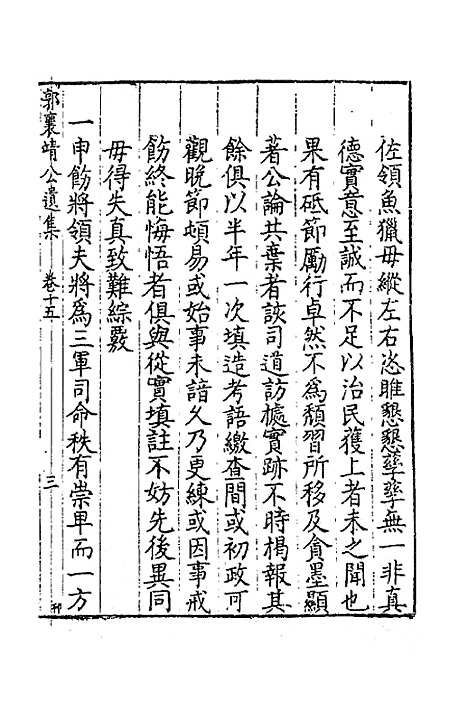 佐領魚獵毋縱左右恣睢懇懇孳孳無一非真
德實意至誠而不足以治民獲上者未之聞也
果有砥節厲行卓然不爲頹習所移及貪墨顯
著公論共棄者該司道訪㨿實跡不時揭報其
餘俱以半年一次填造考語繳查間或初政可
觀晚節頓易或始事未諳久乃更練或因事戒
飭終能悔悟者俱與從實填註不妨先後異同
毋得失真致難綜覈
一申飭將領夫將爲三軍司命秩有崇卑而一方
郭襄靖公遺集 卷十五 三